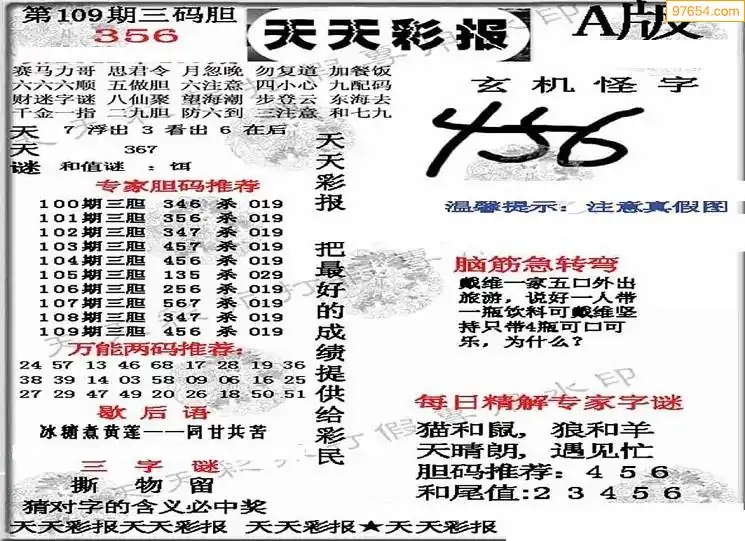 第109期三码胆
356
天天彩报
A版
97654.com
赛马力哥 思君令 月忽晚 勿复道 加餐饭
六六六顺 五做胆 六注意 四小心 九配码
财迷字谜 八仙聚 望海潮 步登云 东海去
千金一指 二九胆 防六到 三注意 和七九
天 7 浮出 3 看出 6 在后
天 367
谜 和值谜 : 饵
专家胆码推荐
100期三胆 346 杀 019
101期三胆 356 杀 019
102期三胆 347 杀 019
103期三胆 457 杀 019
104期三胆 456 杀 019
105期三胆 135 杀 029
106期三胆 256 杀 019
107期三胆 567 杀 019
108期三胆 347 杀 019
109期三胆 456 杀 019
万能两码推荐:
24 57 13 46 68 17 28 19 36
38 39 14 03 58 09 06 16 25
27 29 47 49 20 26 18 50 51
歇后语
冰糖煮黄莲——同甘共苦
三字谜
撕 物 留
猜对字的含义必中奖
天天彩报 把最好的成绩提供给彩民
玄机怪字
456
温馨提示: 注意真假图
脑筋急转弯
戴维一家五口外出
旅游，说好一人带
一瓶饮料可戴维坚
持只带4瓶可口可
乐，为什么?
每日精解专家字谜
猫和鼠，狼和羊
天晴朗，遇见忙
胆码推荐: 4 5 6
和尾值:2 3 4 5 6
天天彩报天天彩报 天天彩报★天天彩报